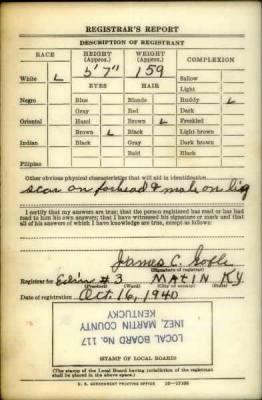 REGISTRAR'S REPORT
DESCRIPTION OF REGISTRANT
RACE HEIGHT (Approx.) WEIGHT (Approx.) COMPLEXION
White ✓ 5' 7" 159 Sallow
EYES HAIR Light
Negro Blue Blonde Ruddy ✓
Gray Red Dark
Oriental Hazel Brown ✓ Freckled
Brown ✓ Black Light brown
Indian Black Gray Dark brown
Bald Black
Filipino
Other obvious physical characteristics that will aid in identification
scar on forhead & mole on
I certify that my answers are true; that the person registered has read or has had
read to him his own answers; that I have witnessed his signature or mark and that
all of his answers of which I have knowledge are true, except as follows:
James C.
(Signature of registrar)
Registrar for # 3 KY
(Precinct) (Ward) (City or county) (State)
Date of registration Oct. 16, 1940
LOCAL BOARD No. 117
INEZ, MARTIN COUNTY
KENTUCKY
(STAMP OF LOCAL BOARD)
(The stamp of the Local Board having jurisdiction of the registrant
shall be placed in the above space.)
U. S. GOVERNMENT PRINTING OFFICE